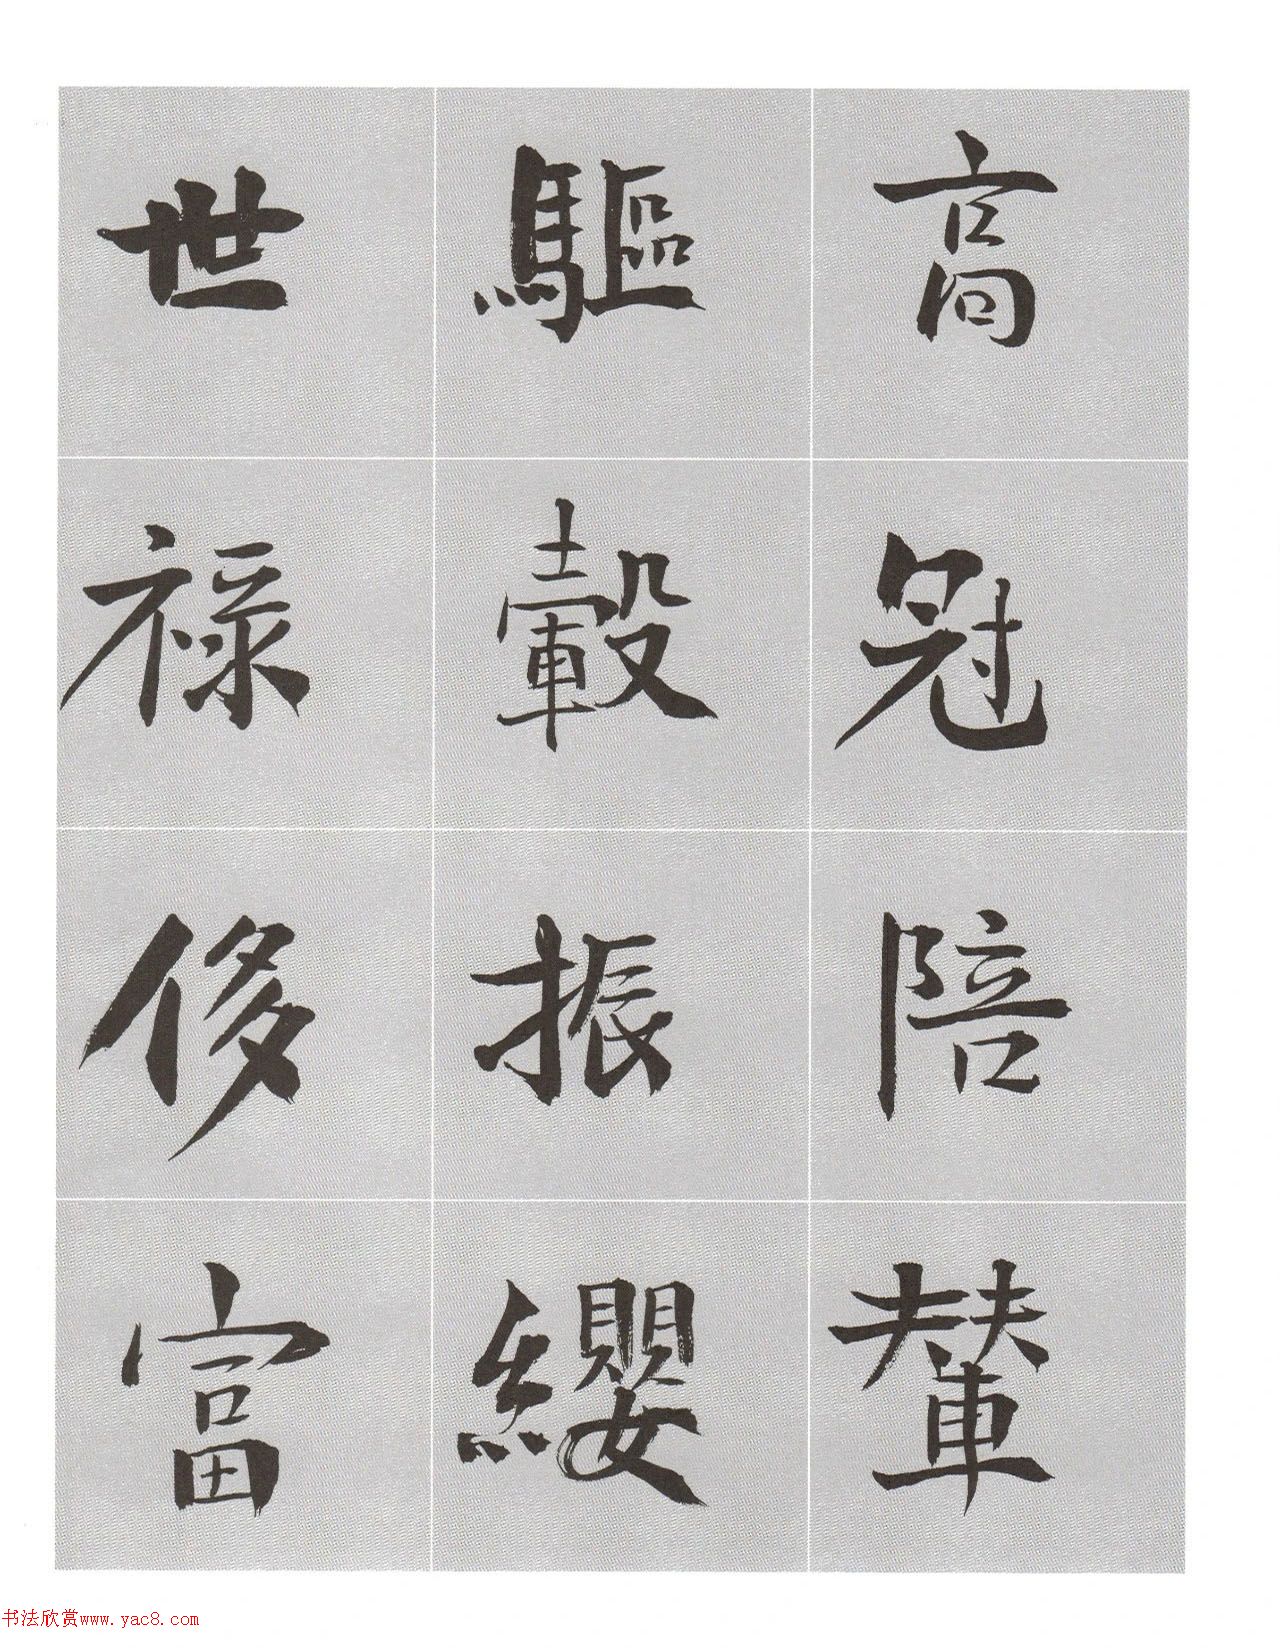 高冠陪輦
驅轂振纓
世祿侈富
书法欣赏www.yac8.com